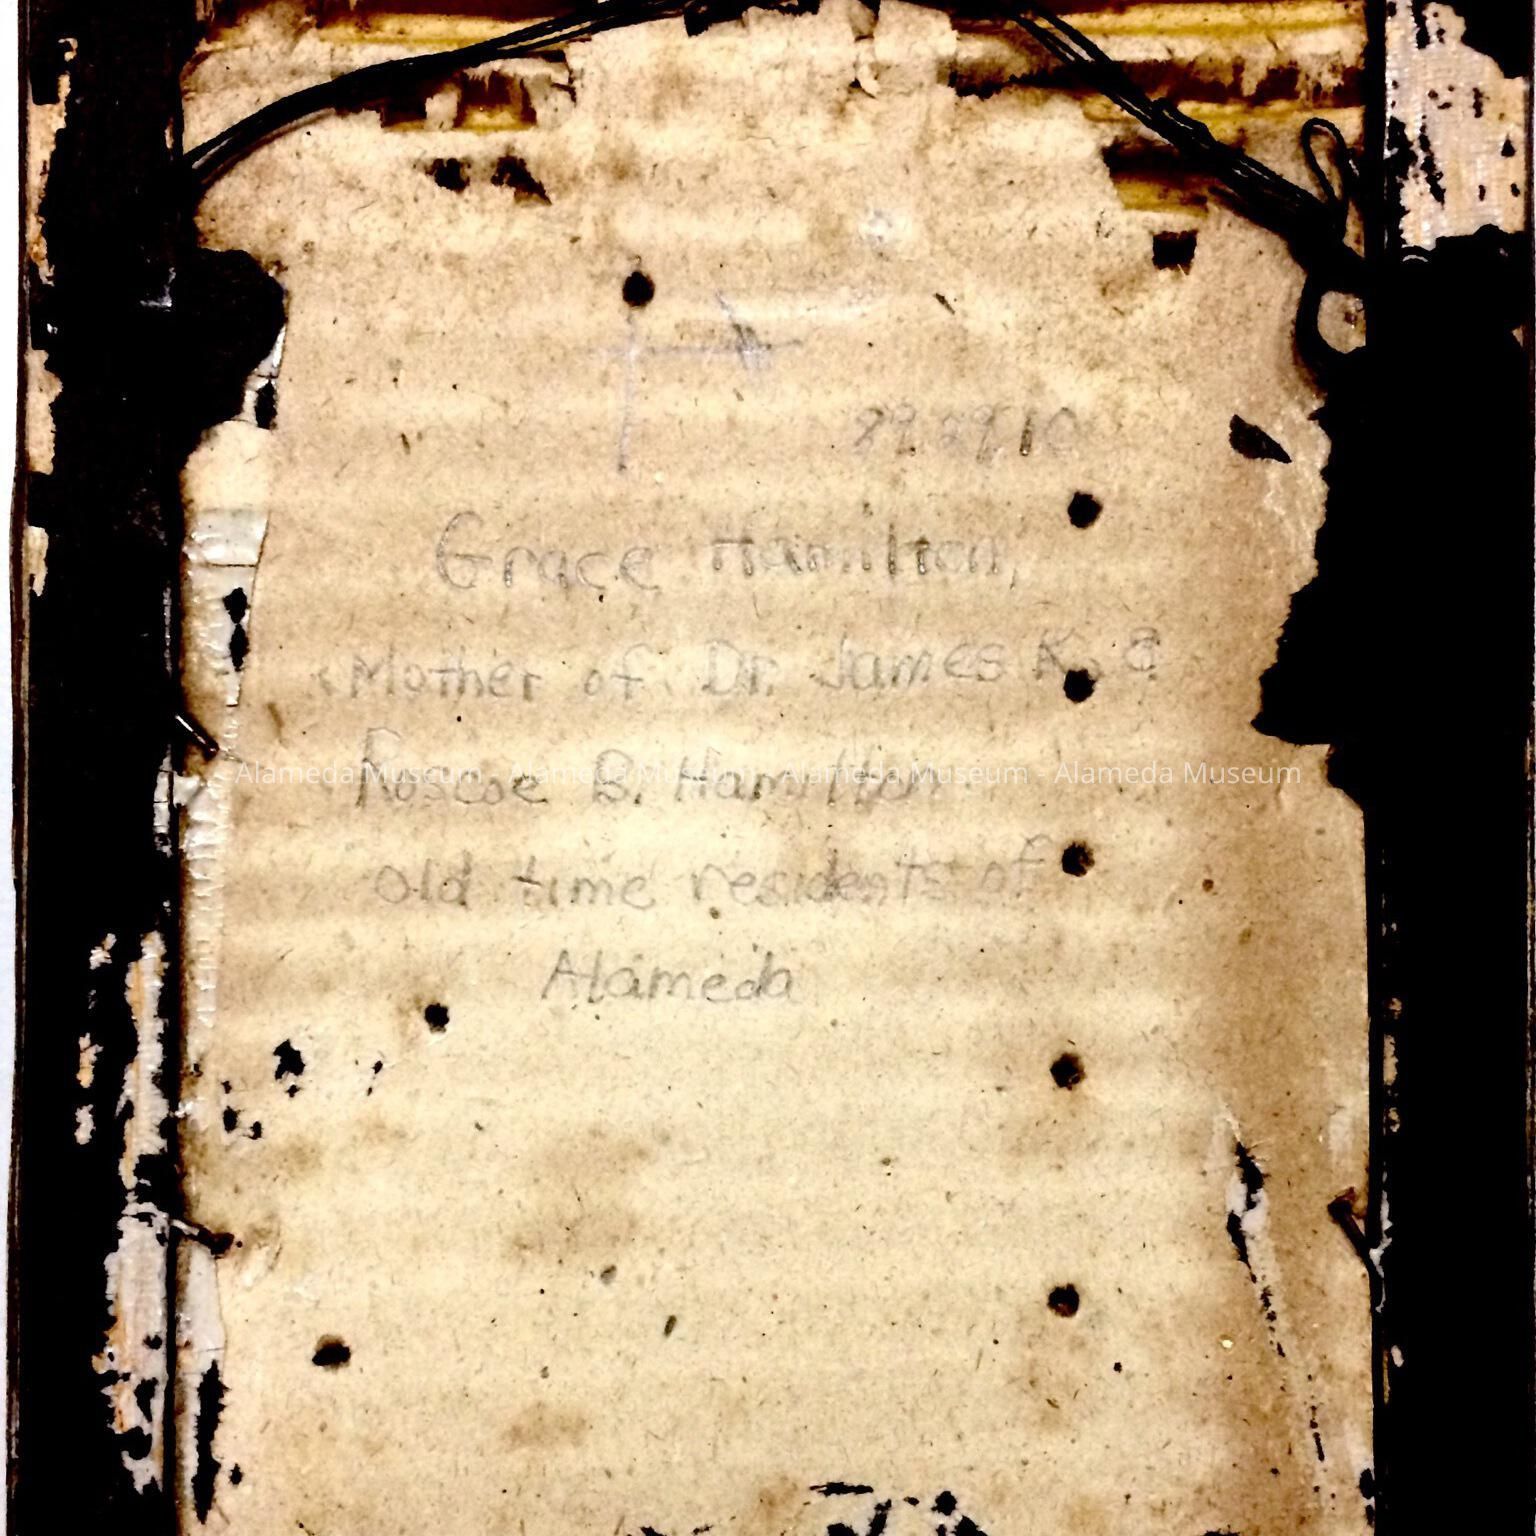 89.29.10
Grace Hamilton,
Mother of Dr. James K. &
Roscoe B. Hamilton
Alameda Museum - Alameda Museum - Alameda Museum - Alameda Museum
old time residents of
Alameda